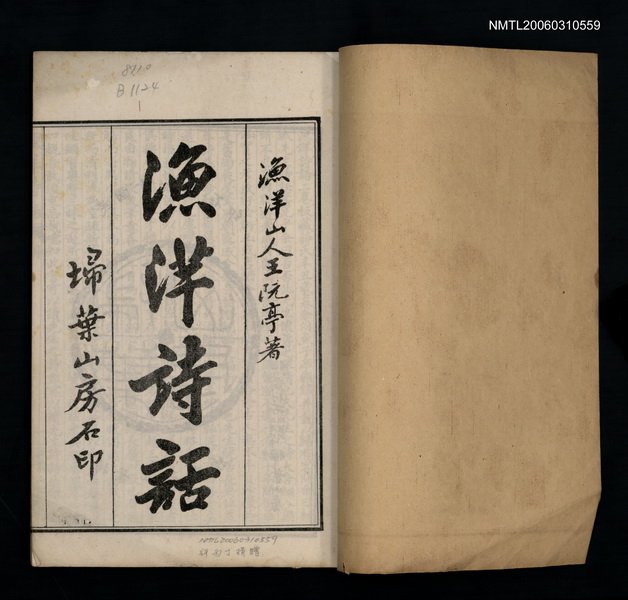 NMTL20060310559
8710
B1124
1
漁洋山人王阮亭著
漁洋詩話
埽葉山房石印
NMTL20060310559